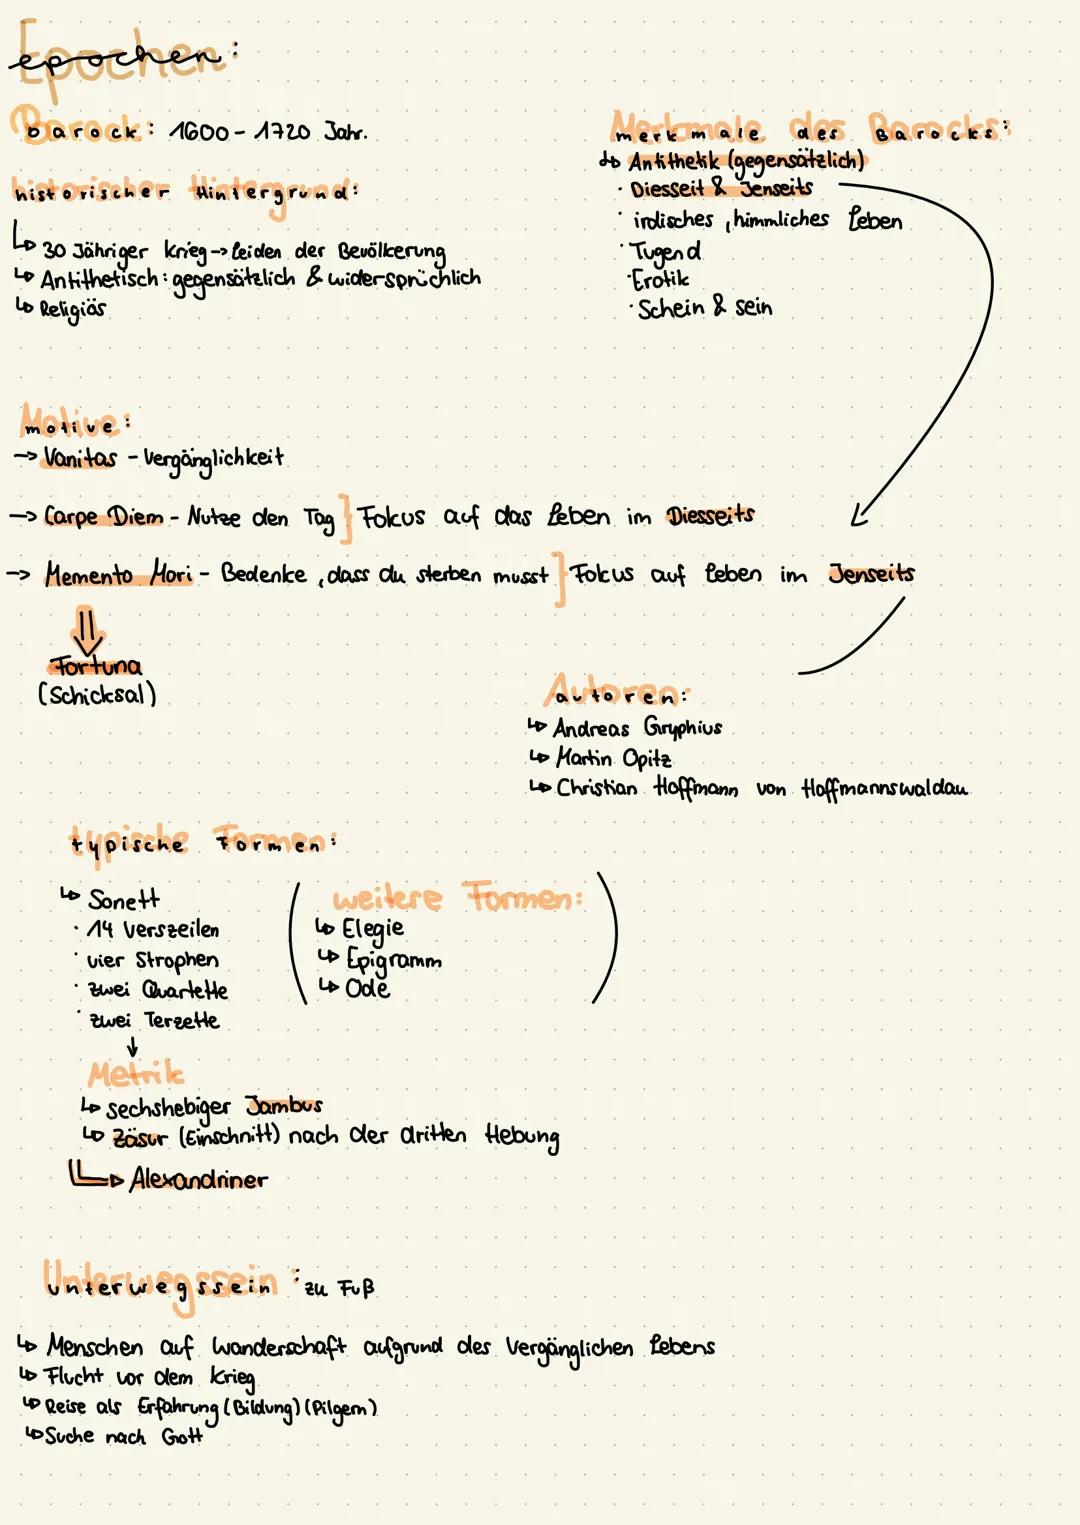 Epochen:
Barock: 1600-1720 Jahr.
historischer Hintergrund:
↳ 30 Jähriger Krieg → Leiden der Bevölkerung
↳ Antithetisch: gegensätzlich & widersprüchlich
↳ Religiös
Merkmale des Barocks:
↳ Antithetik (gegensätzlich)
· Diesseit & Jenseits
· irdisches, himmliches Leben
· Tugend
· Erotik
· Schein & sein
Motive:
→ Vanitas - Vergänglichkeit
→ Carpe Diem - Nutze den Tag } Fokus auf das Leben im Diesseits
→ Memento Mori - Bedenke, dass du sterben musst } Fokus auf Leben im Jenseits
⇓
Fortuna
(Schicksal)
Autoren:
↳ Andreas Gryphius
↳ Martin Opitz
↳ Christian Hoffmann von Hoffmannswaldau
typische Formen:
↳ Sonett
· 14 Verszeilen
· vier Strophen
· zwei Quartette
· zwei Terzette
(weitere Formen:
↳ Elegie
↳ Epigramm
↳ Ode)
↓
Metrik
↳ sechshebiger Jambus
↳ Zäsur (Einschnitt) nach der dritten Hebung
↳ Alexandriner
Unterwegssein: zu Fuß
↳ Menschen auf Wanderschaft aufgrund des Vergänglichen Lebens
↳ Flucht vor dem Krieg
↳ Reise als Erfahrung (Bildung) (Pilgern)
↳ Suche nach Gott